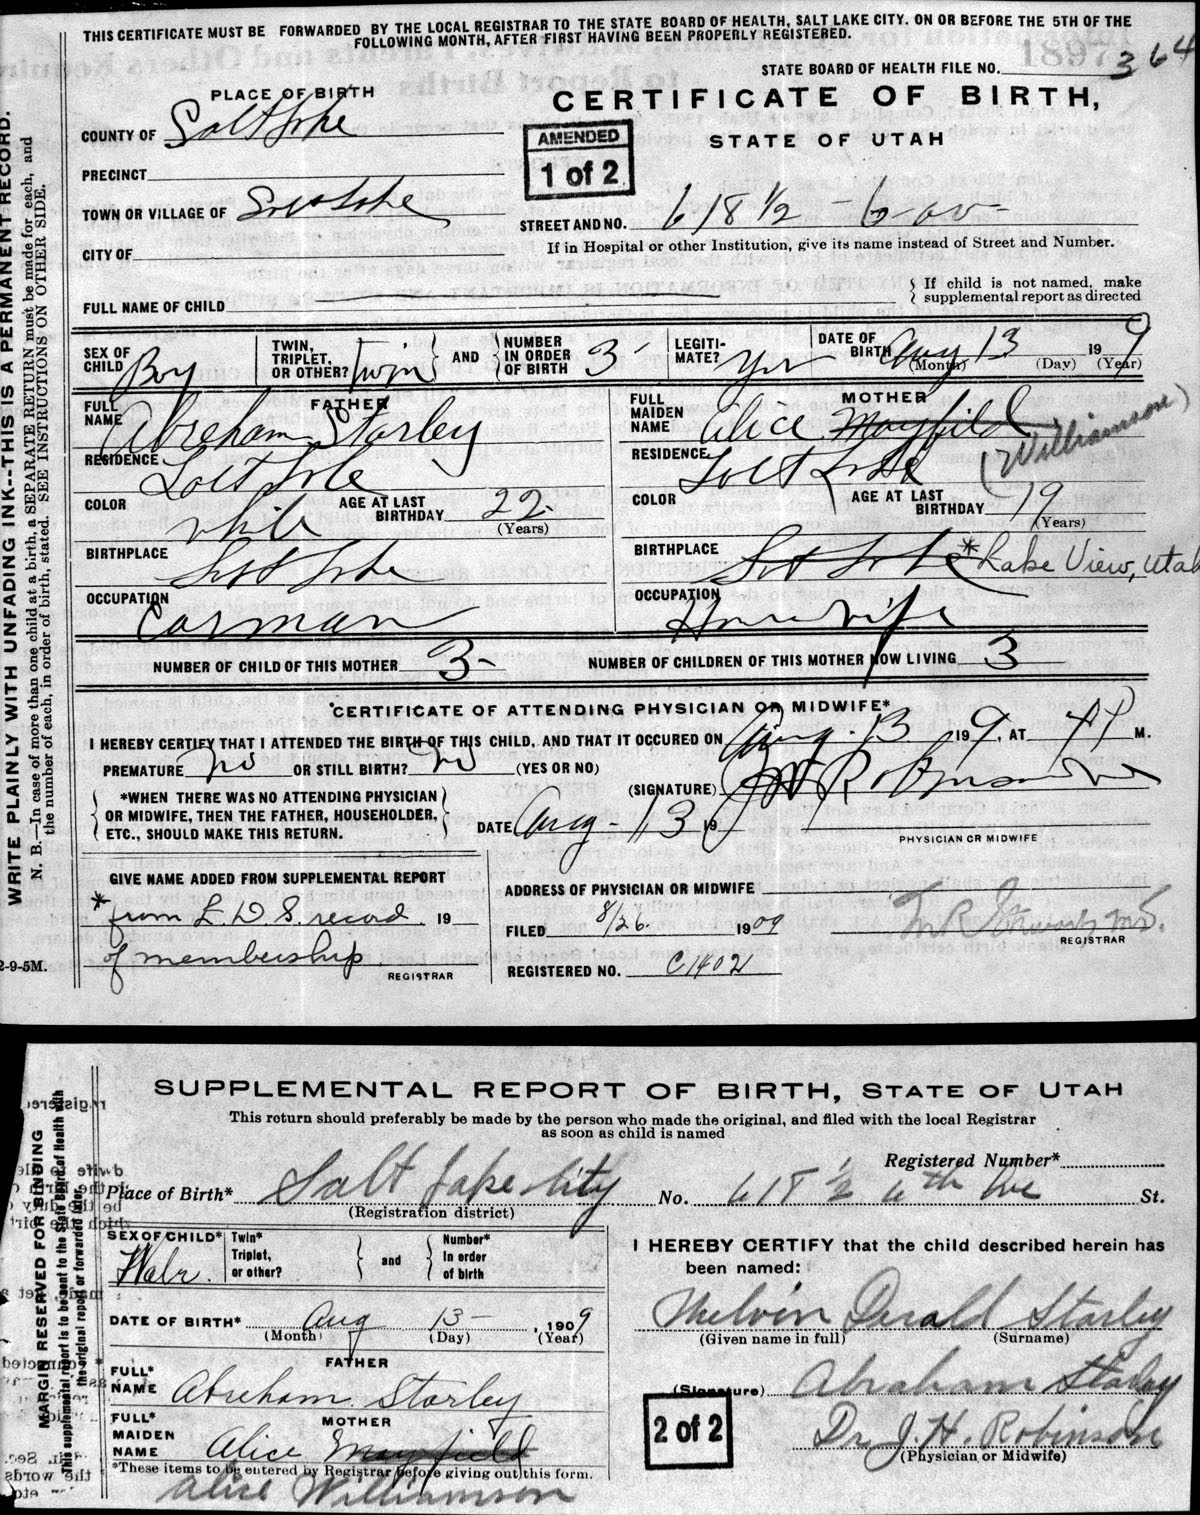 THIS CERTIFICATE MUST BE FORWARDED BY THE LOCAL REGISTRAR TO THE STATE BOARD OF HEALTH, SALT LAKE CITY. ON OR BEFORE THE 5TH OF THE
FOLLOWING MONTH, AFTER FIRST HAVING BEEN PROPERLY REGISTERED.
STATE BOARD OF HEALTH FILE NO. 364
PLACE OF BIRTH
CERTIFICATE OF BIRTH,
STATE OF UTAH
COUNTY OF Salt Lake
AMENDED
1 of 2
PRECINCT
TOWN OR VILLAGE OF Salt Lake
STREET AND NO. 618 ½ - 6 - av -
If in Hospital or other Institution, give its name instead of Street and Number.
CITY OF
FULL NAME OF CHILD
If child is not named, make
supplemental report as directed
SEX OF CHILD Boy
TWIN, TRIPLET, OR OTHER? Twin
AND
NUMBER IN ORDER OF BIRTH 3
LEGITI-MATE? Yes
DATE OF BIRTH Aug 13 19 9
(Month) (Day) (Year)
FATHER
FULL NAME Abreham Starley
RESIDENCE Salt Lake
COLOR White
AGE AT LAST BIRTHDAY 22
(Years)
BIRTHPLACE Salt Lake
OCCUPATION Carman
MOTHER
FULL MAIDEN NAME Alice Mayfield
(Williamson)
RESIDENCE Salt Lake
COLOR
AGE AT LAST BIRTHDAY 19
(Years)
BIRTHPLACE Salt Lake * Lake View, Utah
OCCUPATION Housewife
NUMBER OF CHILD OF THIS MOTHER 3-
NUMBER OF CHILDREN OF THIS MOTHER NOW LIVING 3
*CERTIFICATE OF ATTENDING PHYSICIAN OR MIDWIFE*
I HEREBY CERTIFY THAT I ATTENDED THE BIRTH OF THIS CHILD, AND THAT IT OCCURED ON Aug. 13 19 9, AT 4 P M.
PREMATURE No OR STILL BIRTH? No (YES OR NO)
(SIGNATURE) J H Robinson
*WHEN THERE WAS NO ATTENDING PHYSICIAN
OR MIDWIFE, THEN THE FATHER, HOUSEHOLDER,
ETC., SHOULD MAKE THIS RETURN.
DATE Aug - 13 19 9
PHYSICIAN OR MIDWIFE
GIVE NAME ADDED FROM SUPPLEMENTAL REPORT
* from L. D. S. record 19
of membership
REGISTRAR
ADDRESS OF PHYSICIAN OR MIDWIFE
FILED 8/26. 1909
REGISTRAR
REGISTERED NO. C1402
2-9-5M.
WRITE PLAINLY WITH UNFADING INK--THIS IS A PERMANENT RECORD.
N. B.—In case of more than one child at a birth, a SEPARATE RETURN must be made for each, and
the number of each, in order of birth, stated. SEE INSTRUCTIONS ON OTHER SIDE.
SUPPLEMENTAL REPORT OF BIRTH, STATE OF UTAH
This return should preferably be made by the person who made the original, and filed with the local Registrar
as soon as child is named
Registered Number*
Place of Birth* Salt Lake City No. 618 ½ 6th Ave St.
(Registration district)
SEX OF CHILD* Male.
Twin* Triplet, or other?
and
Number* in order of birth
DATE OF BIRTH* Aug 13 - , 1909
(Month) (Day) (Year)
FATHER
FULL* NAME Abreham Starley
MOTHER
FULL* MAIDEN NAME Alice Mayfield
*These items to be entered by Registrar before giving out this form.
Alice Williamson
I HEREBY CERTIFY that the child described herein has
been named:
Melvin Derald Starley
(Given name in full) (Surname)
(Signature) Abraham Starley
Dr. J. H. Robinson
(Physician or Midwife)
2 of 2
MARGIN RESERVED FOR BINDING
This supplemental report is to be sent to the State Board of Health with
the original report or forwarded after.